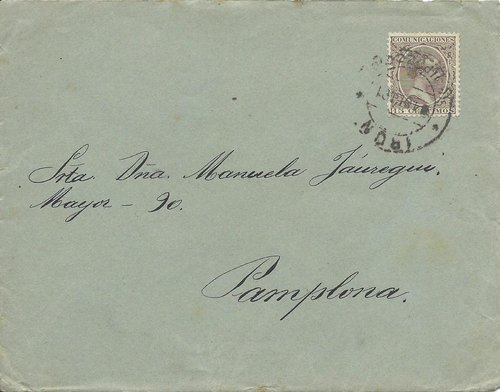 COMUNICACIONES
15 CENTIMOS
IRUN
Srta. Dña. Manuela Jáuregui.
Mayor - 90.
Pamplona.